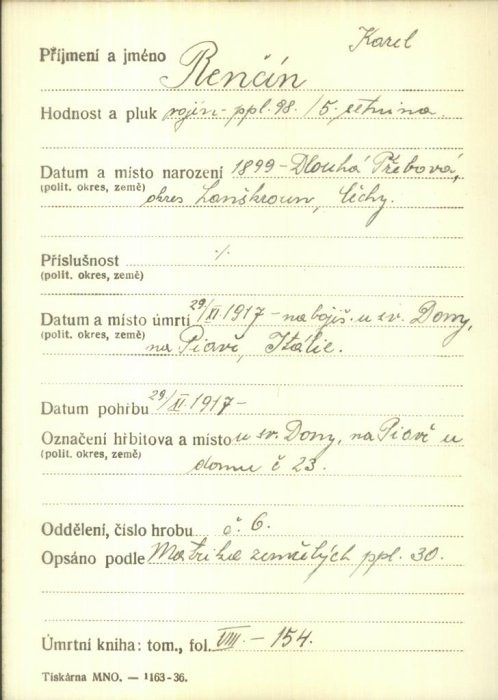 Karel
Příjmení a jméno Renčín
Hodnost a pluk vojín - ppl. 98. / 5. setnina.
Datum a místo narození 1899 - Dlouhá Třebová,
(polit. okres, země) okres Lanškroun, Čechy.
Příslušnost ·/.
(polit. okres, země)
Datum a místo úmrtí 29/XI 1917 - na bojiš. u sv. Dony,
(polit. okres, země) na Piavě, Itálie.
Datum pohřbu 29/XI. 1917 -
Označení hřbitova a místo u sv. Dony, na Piavě u
(polit. okres, země) domu č 23.
Oddělení, číslo hrobu č. 6.
Opsáno podle Matrika zemřelých ppl. 30.
Úmrtní kniha: tom., fol. VIII. - 154.
Tiskárna MNO. — 1163-36.